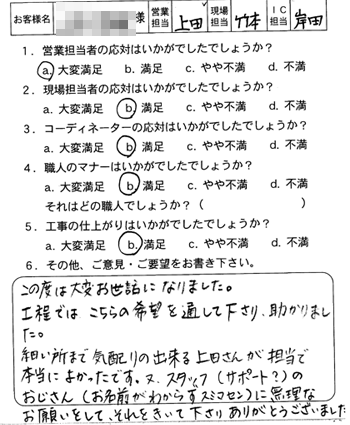 お客様名 様 営業担当 上田 現場担当 竹本 IC担当 岸田
1．営業担当者の応対はいかがでしたでしょうか？
a. 大変満足 b. 満足 c. やや不満 d. 不満
2．現場担当者の応対はいかがでしたでしょうか？
a. 大変満足 b. 満足 c. やや不満 d. 不満
3．コーディネーターの応対はいかがでしたでしょうか？
a. 大変満足 b. 満足 c. やや不満 d. 不満
4．職人のマナーはいかがでしたでしょうか？
a. 大変満足 b. 満足 c. やや不満 d. 不満
それはどの職人でしょうか？（ ）
5．工事の仕上がりはいかがでしたでしょうか？
a. 大変満足 b. 満足 c. やや不満 d. 不満
6．その他、ご意見・ご要望をお書き下さい。
この度は大変お世話になりました。
工程ではこちらの希望を通して下さり、助かりまし
た。
細い所まで気配りの出来る上田さんが担当で
本当によかったです。又、スタッフ（サポート？）の
おじさん（お名前がわからずスミマセン）に無理な
お願いをして、それをきいて下さりありがとうございました